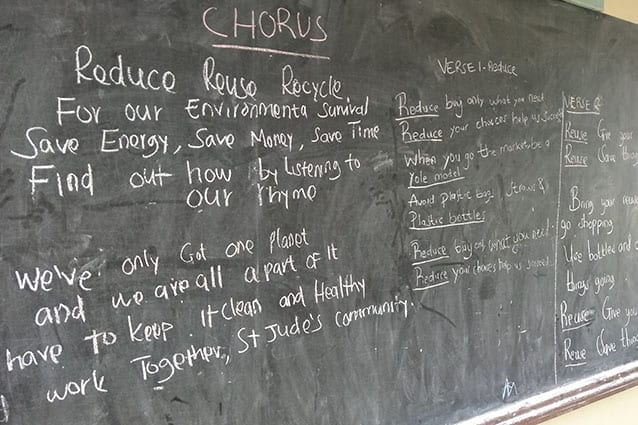 CHORUS
Reduce Reuse Recycle
For our Environmenta Survival
Save Energy, Save Money, Save Time
Find out how by Listening to
our rhyme
we've only Got one Planet
and we are all a part of it
have to keep it Clean and Healthy
work Together, St Jude's community.
VERSE 1 - Reduce
Reduce buy only what you need
Reduce your choices help us succeed
When you go the market be a
role model
Avoid plastic bags, straws &
Plastic bottles
Reduce buy only what you need
Reduce your choices help us succeed
VERSE 2
Reuse Give your
Reuse
Bring your
go shopping
Use bottles and
things going
Give you
Reuse thing